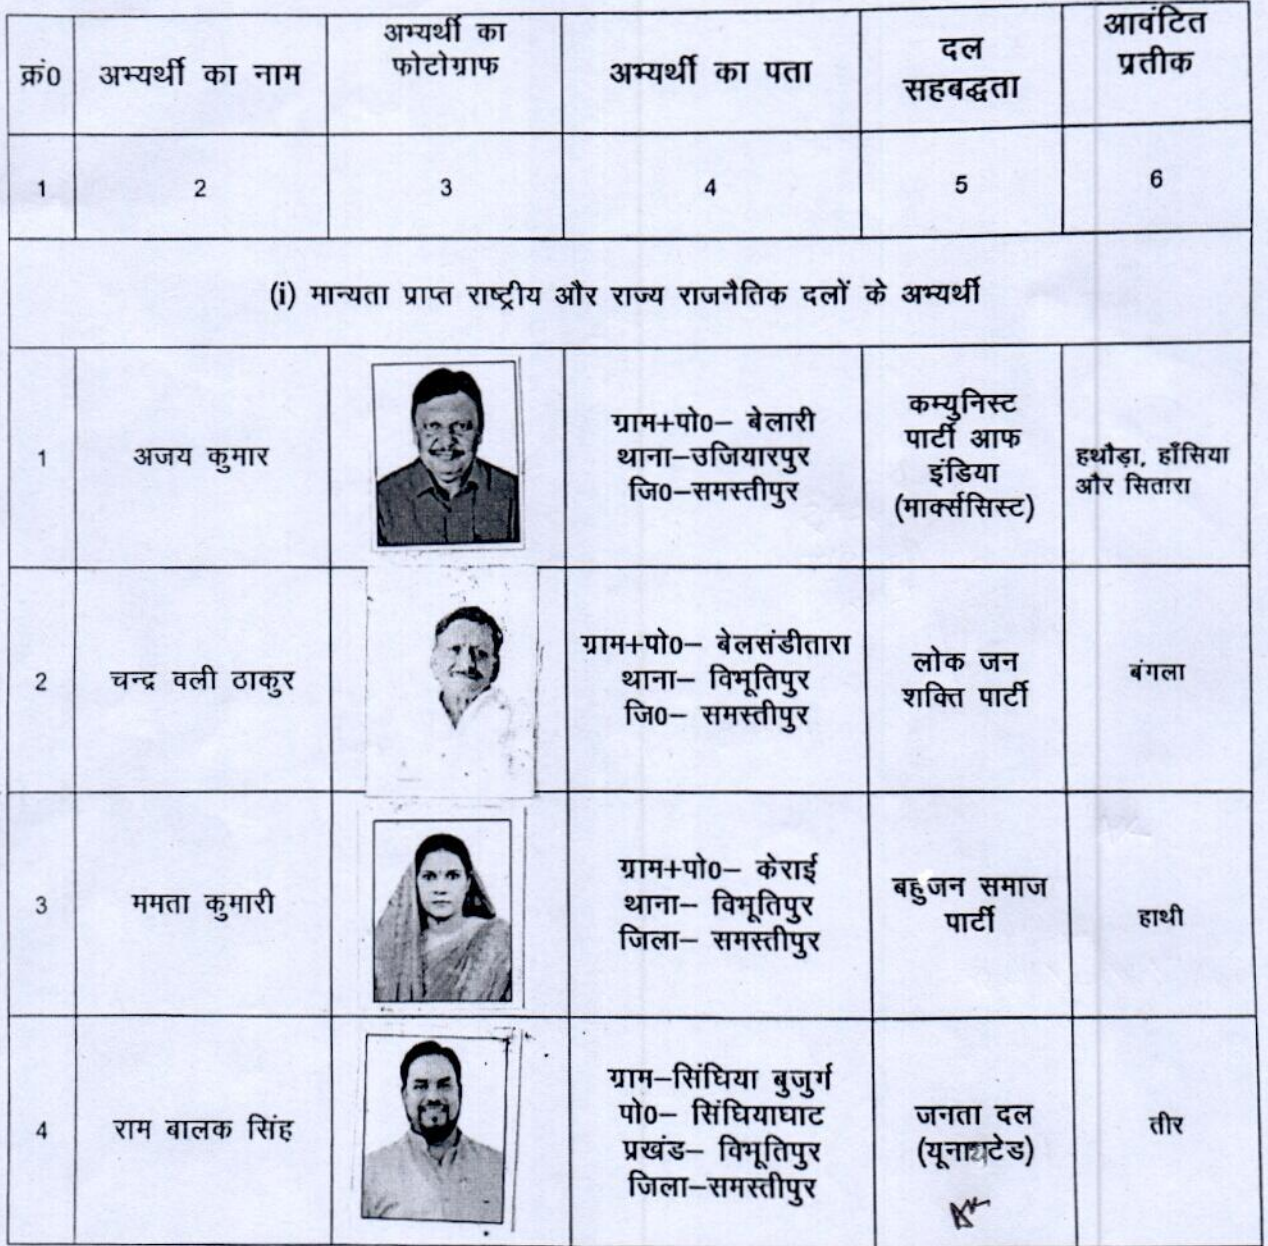 क्रं0
अभ्यर्थी का नाम
अभ्यर्थी का
फोटोग्राफ
अभ्यर्थी का पता
दल
सहबद्धता
आवंटित
प्रतीक
1
2
3
4
5
6
(i) मान्यता प्राप्त राष्ट्रीय और राज्य राजनैतिक दलों के अभ्यर्थी
1
अजय कुमार
ग्राम+पो0– बेलारी
थाना–उजियारपुर
जि0–समस्तीपुर
कम्युनिस्ट
पार्टी आफ
इंडिया
(मार्क्ससिस्ट)
हथौड़ा, हाँसिया
और सितारा
2
चन्द्र वली ठाकुर
ग्राम+पो0– बेलसंडीतारा
थाना– विभूतिपुर
जि0– समस्तीपुर
लोक जन
शक्ति पार्टी
बंगला
3
ममता कुमारी
ग्राम+पो0– केराई
थाना– विभूतिपुर
जिला– समस्तीपुर
बहुजन समाज
पार्टी
हाथी
4
राम बालक सिंह
ग्राम–सिंघिया बुजुर्ग
पो0– सिंघियाघाट
प्रखंड– विभूतिपुर
जिला–समस्तीपुर
जनता दल
(यूनायटेड)
तीर